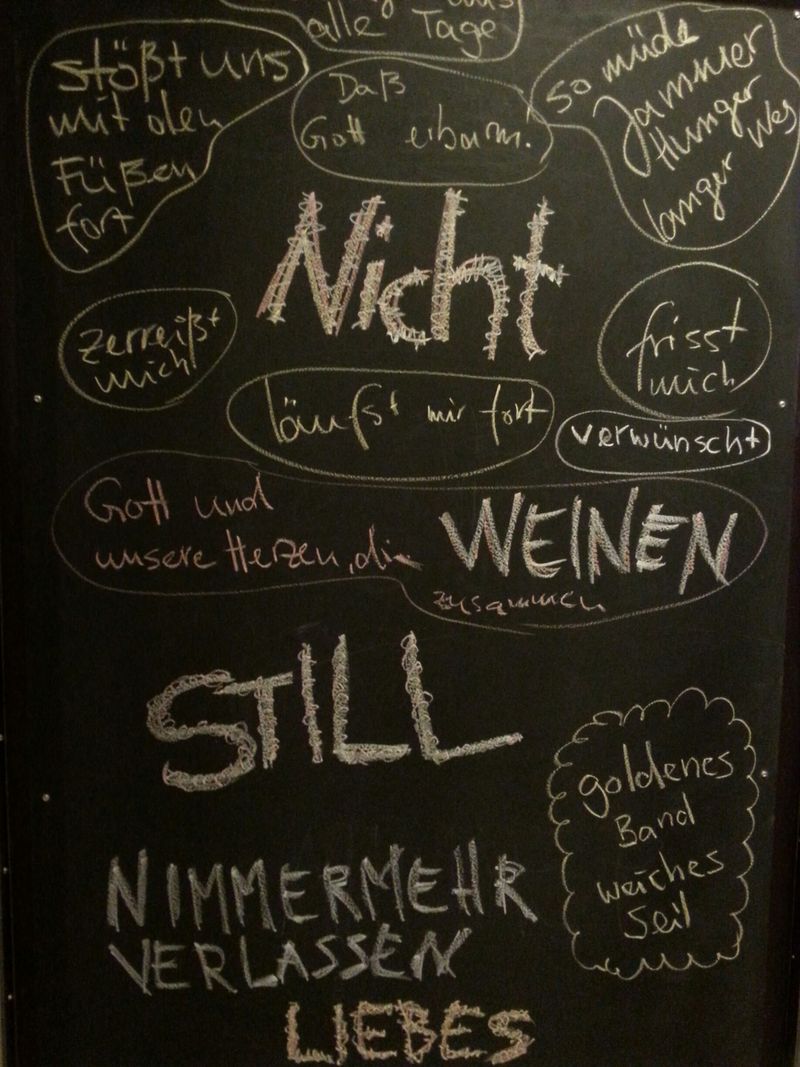 uns
alle Tage
stößt uns
mit den
Füßen
fort
Daß
Gott erbarm!
so müde
Jammer
Hunger
langer Weg
Nicht
zerreißt
mich
frisst
mich
läufst mir fort
verwünscht
Gott und
unsere Herzen, die WEINEN
zusammen
STILL
goldenes
Band
weiches
Seil
NIMMERMEHR
VERLASSEN
LIEBES